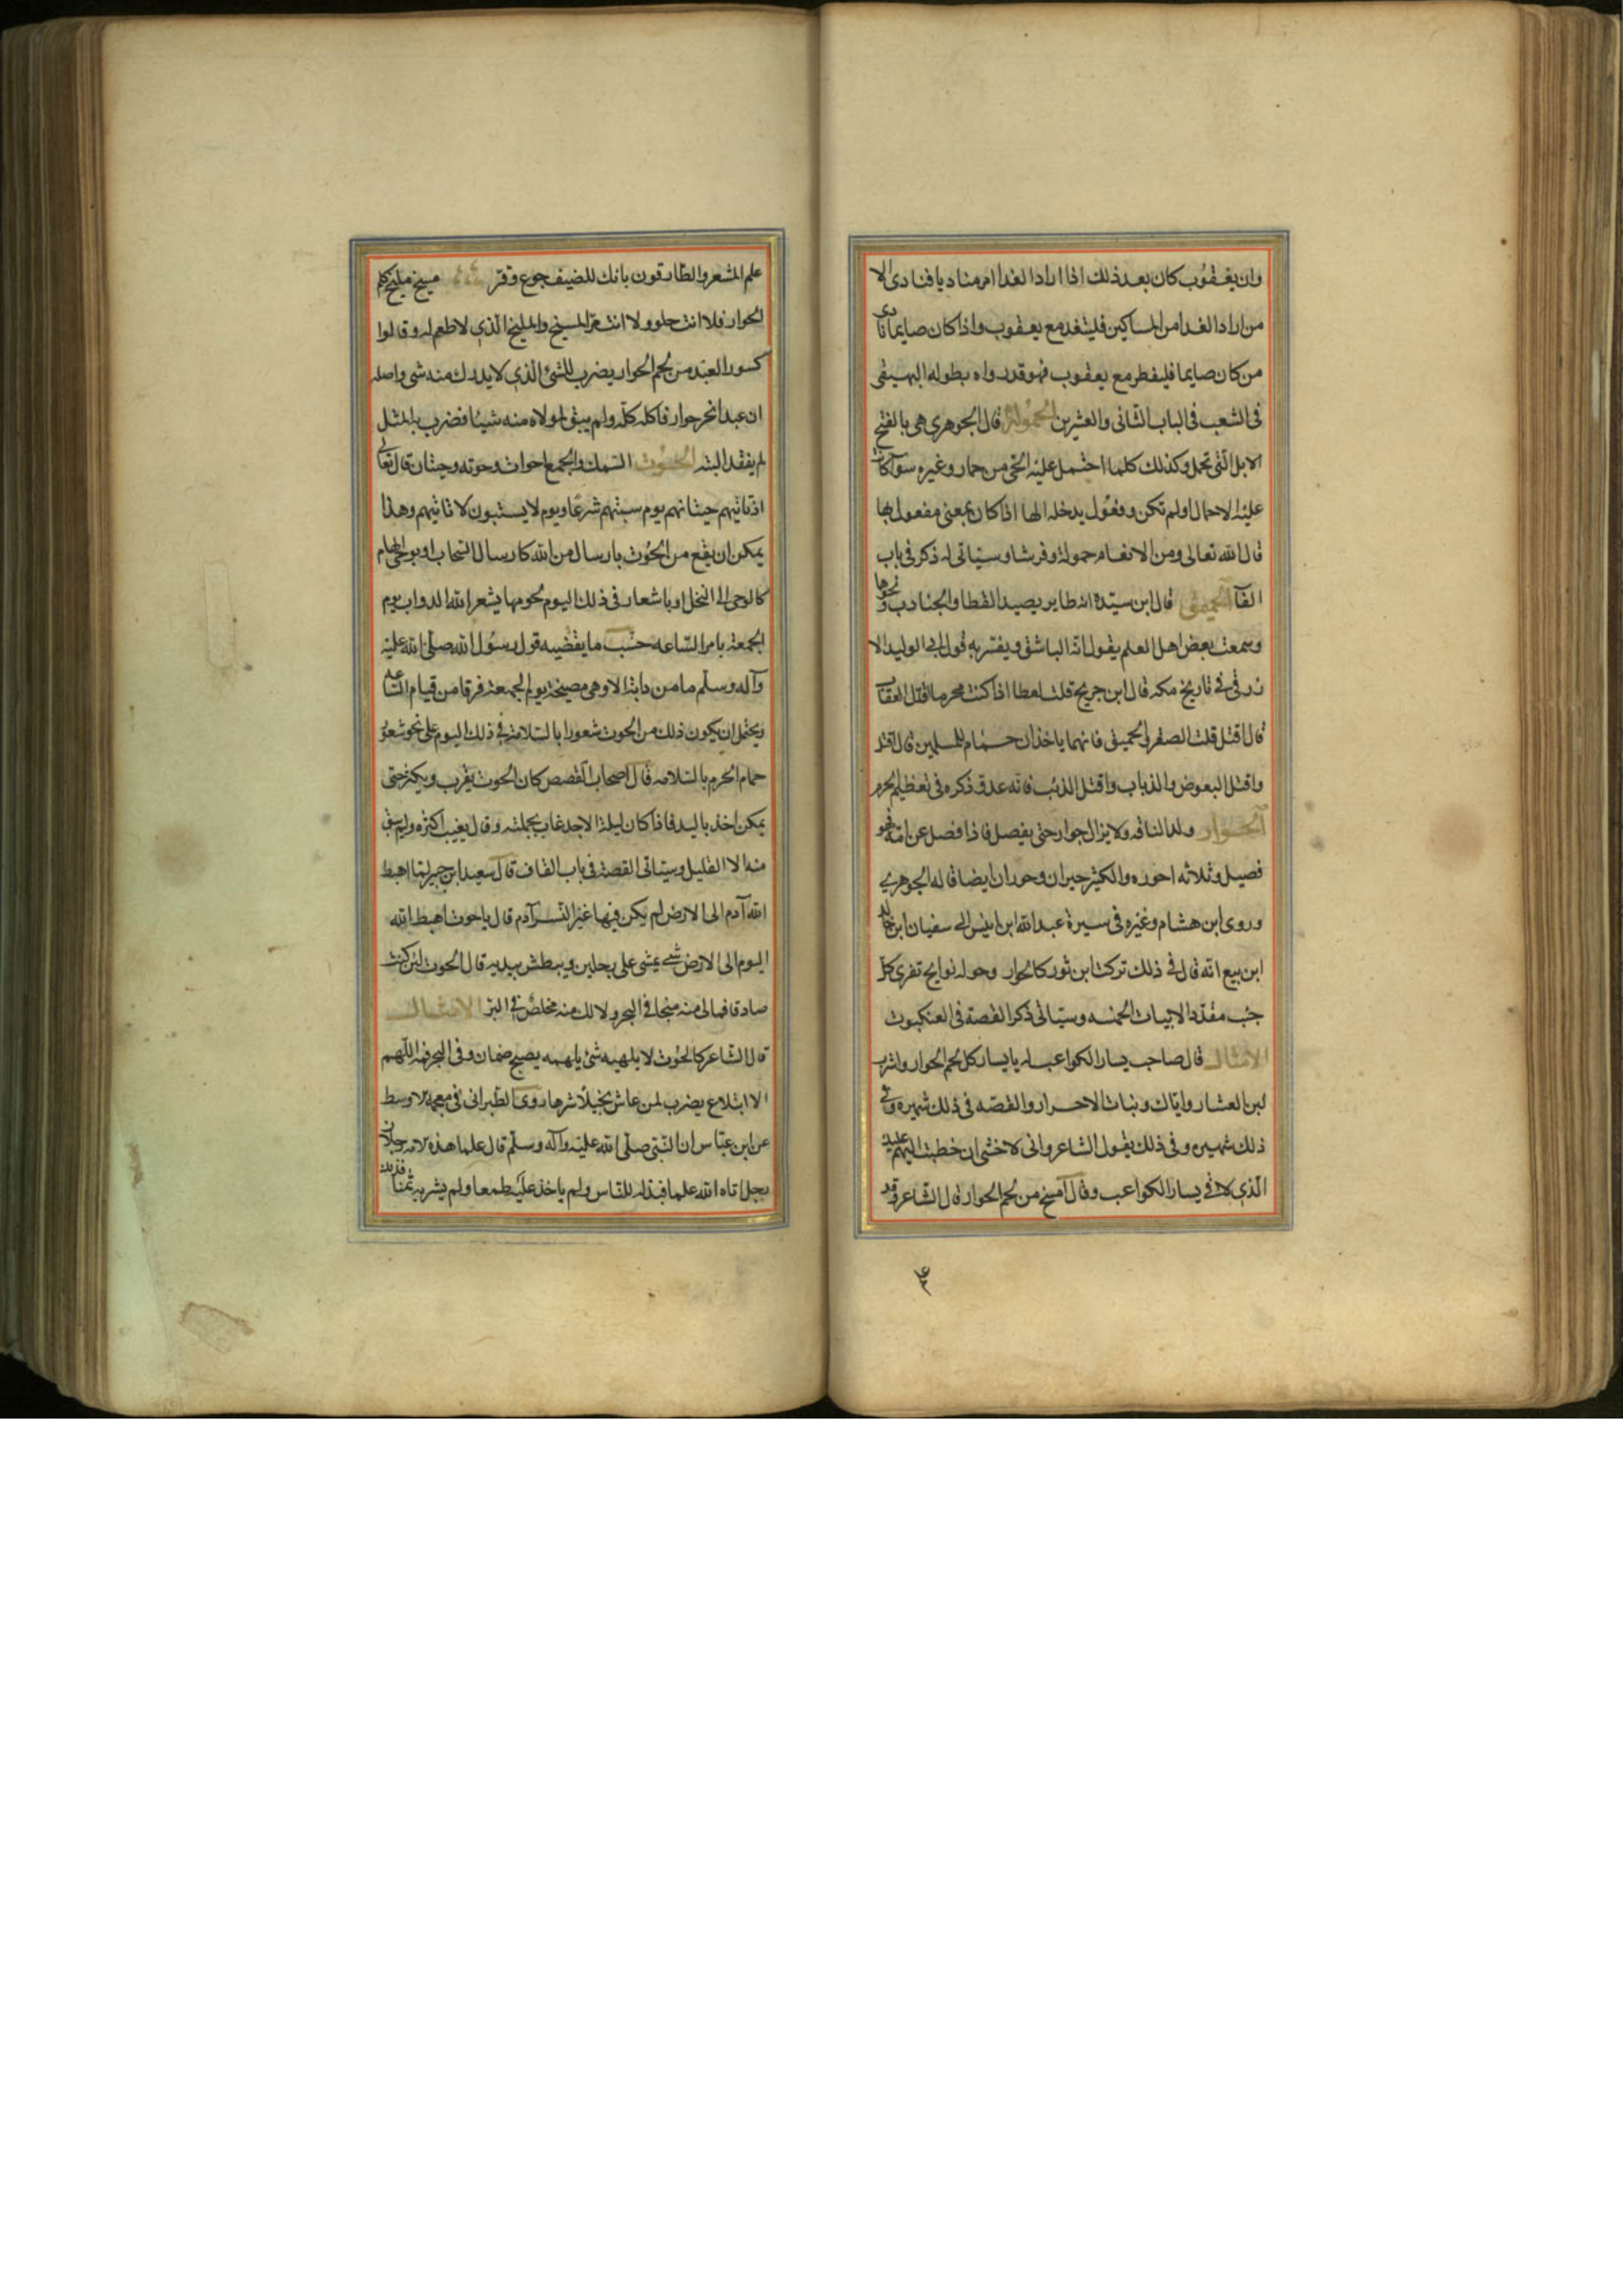 وان يعقوب كان بعد ذلك اذا اراد الغدا امر مناديا فنادى الا
من اراد الغدا من المساكين فليتغد مع يعقوب واذا كان صايما نادى
من كان صايما فليفطر مع يعقوب فهو قدر رواه بطوله البهيقى
فى الشعب فى الباب الثانى والعشرين الحمولة قال الجوهرى هى بالفتح
الابل التى تحمل وكذلك كلما احتمل عليه الحى من حمار وغيره سوآ كانت
عليه الاحمال اولم تكن وفعول يدخله الها اذا كان بمعنى مفعول بها
قال الله تعالى ومن الانعام حمولة وفرشا وسياتى له ذكر فى باب
الفآ الحميق قال ابن سيدة انه طاير يصيد القطا والجنادب ونحوها
وسمعت بعض اهل العلم يقول انه الباشق ويفسر به قول ابى الوليد الا
زرقى فى تاريخ مكه قال ابن جريج قلت لعطا اذا كنت محرما فتل العقاب
قال اقتل قلت الصقر والحميق فانهما ياخذان حمام المسلمين قال اقتل
واقتل البعوض والذباب واقتل الذئب فانه عدو ذكره فى تعظيم الحرم
الحوار ولد الناقه ولا يزال حوار حتى يفصل فاذا فصل عن امه فهو
فصيل وثلاثه احوره والكثير حيران وحوران ايضا قاله الجوهرى
وروى ابن هشام وغيره فى سيرة عبد الله ابن انيس الى سفيان ابن خالد
ابن بيع انه قال فى ذلك تركت ابن ثور كالحوار وحوله نوايح تفرى كل
جيب مقدد الابيات الخمسه وسياتى ذكر القصة فى العنكبوت
الامثال قال صاحب يسار الكواعب له يا يسار كل لحم الحوار واشرب
لبن العشار واياك وبنات الاحرار والقصه فى ذلك شهيره وفى
ذلك شهيره وفى ذلك يقول الشاعر وانى لاخشى ان خطبت اليهم عليك
الذى لاقى يسار الكواعب وقال امسخ من لحم الحوار قال الشاعر وقد
علم المشعر والطارقون بانك للضيف جوع وقر مسيخ مليخ كلحم
الحوار فلا انت حلو ولا انت مر المسيخ والمليخ الذى لا طعم له وقالوا
كسور العبد من لحم الحوار يضرب للشئ الذى لا يدرك منه شى واصله
ان عبدا نحر حوار فاكله كله ولم يبق لمولاه منه شيئا فضرب به المثل
لم يفقد البته الحوت السمك والجمع احوات وحوته وحيتان قال تعالى
اذ تاتيهم حيتانهم يوم سبتهم شرعا ويوم لا يسبتون لا تاتيهم وهذا
يمكن ان يقع من الحوت بارسال من الله كارسال السحاب او بوحى الهام
كالوحى الى النحل او باشعار فى ذلك اليوم نحو ما يشعر الله الدواب يوم
الجمعة بامر الساعه حسب ما يقضيه قول رسول الله صلى الله عليه
وآله وسلم ما من دابة الا وهى مصيخة يوم الجمعة فرقا من قيام الساعه
ويحتمل ان يكون ذلك من الحوت شعورا بالسلامة فى ذلك اليوم على نحو شعور
حمام الحرم بالسلامه قال اصحاب القصص كان الحوت يقرب ويكثر حتى
يمكن اخذ باليد فاذا كان ليلة الاحد غاب بجملته وقال يغيب اكثره ولم يبق
منه الا القليل وسياتى القصة فى باب القاف قال سعيد ابن جبير لما اهبط
الله آدم الى الارض لم يكن فيها غير النسر آدم قال يا حوت اهبط الله
اليوم الى الارض شى يمشى على رجلين ويبطش بيديه قال الحوت لئن كنت
صادقا فمالى منه منجا فى البحر ولا لك منه مخلص فى البر الامثال
قال الشاعر كالحوت لا يلهيه شى يلهمه يصبح ضمان وفى البحر فمه اللهم
الابتلاع يضرب لمن عاش بخيلا شرها روى الطبرانى فى معجمه الاوسط
عن ابن عباس ان النبى صلى الله عليه وآله وسلم قال علما هذه الامه رجلان
رجل اتاه الله علما فبذله للناس ولم ياخذ عليه طمعا ولم يشر به ثمنا فذلك